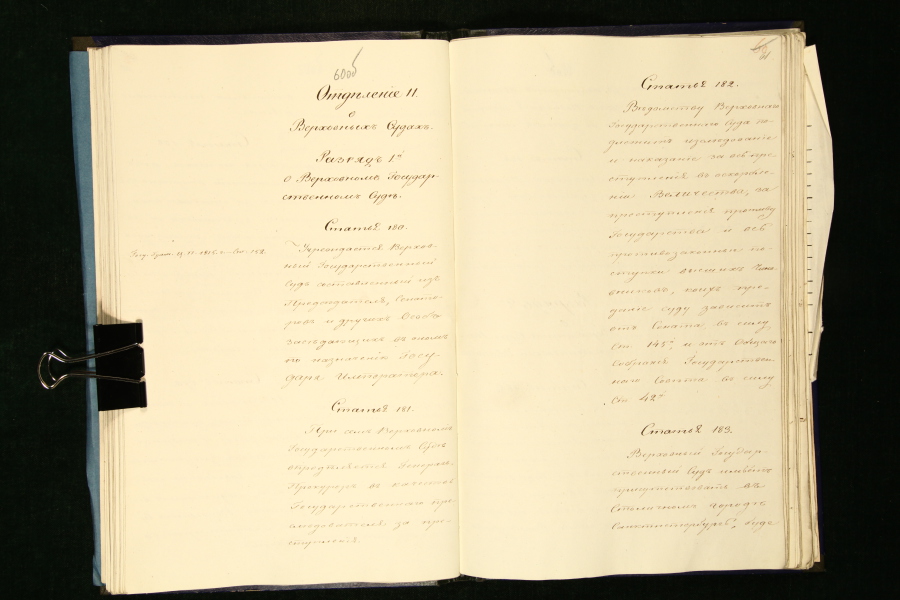 60об
Отдѣленіе 11.
о
Верховныхъ Судахъ.
Разрядъ 1й
О Верховномъ Государ-
ственномъ Судѣ.
Статья 180.
Учреждается Верхов-
ный Государственный
Судъ составленный изъ
Предсѣдателя, Сенато-
ровъ и другихъ Особъ
засѣдающихъ въ ономъ
по назначенію Госу-
даря Императора.
Статья 181.
При семъ Верховномъ
Государственномъ Судѣ
опредѣляется Генералъ-
Прокуроръ въ качествѣ
Государственнаго пре-
слѣдователя за пре-
ступленія.
Статья 182.
Вѣдомству Верховнаго
Государственнаго Суда по-
длежитъ изслѣдованіе
и наказаніе за всѣ пре-
ступленія въ оскорбле-
ніи Величества, за
преступленія противу
Государства и всѣ
противозаконные по-
ступки высшихъ Чино-
вниковъ, коихъ пре-
даніе суду зависитъ
отъ Сената въ силу
Ст. 145й и отъ Общаго
собранія Государствен-
наго Совѣта въ силу
Ст. 42й
Статья 183.
Верховный Государ-
ственный Судъ имѣетъ
присутствовать въ
Столичномъ городѣ
Санктпетербургѣ, буде